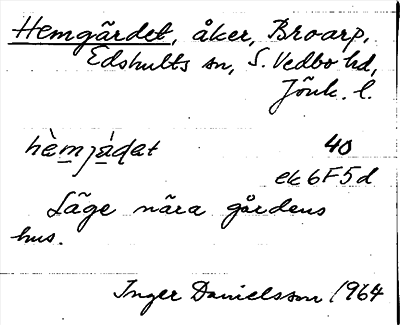 Hemgärdet, åker, Broarp,
Edshults sn, S. Vedbo hd,
Jönk. l.
hèmjáḍat 40
ek 6F5d
Läge nära gårdens
hus.
Inger Danielsson 1964